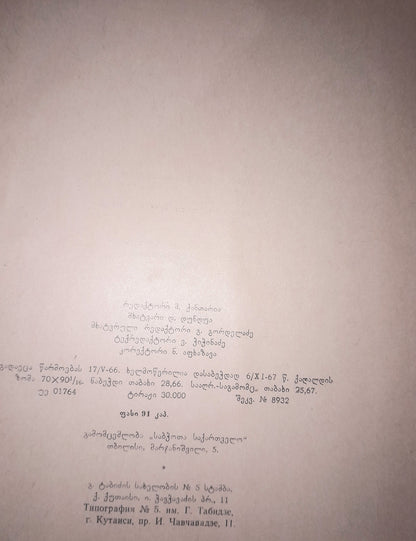 რედაქტორი მ. ქანთარია
მხატვარი დ. დუნდუა
მხატვრული რედაქტორი გ. გორდელაძე
ტექრედაქტორი ე. ჭიჭინაძე
კორექტორი ნ. აფხაზავა
გადაეცა წარმოებას 17/V-66. ხელმოწერილია დასაბეჭდად 6/XI-67 წ. ქაღალდის
ზომა 70×90¹/₁₆ ნაბეჭდი თაბახი 28,66. სააღრ.-საგამომც. თაბახი 25,67.
უე 01764 ტირაჟი 30.000 შეკვ. № 8932
ფასი 91 კაპ.
გამომცემლობა „საბჭოთა საქართველო“
თბილისი, მარჯანიშვილი, 5.
*
გ. ტაბიძის სახელობის № 5 სტამბა.
ქ. ქუთაისი, ი. ჭავჭავაძის პრ., 11
Типография № 5. им. Г. Табидзе,
г. Кутаиси, пр. И. Чавчавадзе, 11.